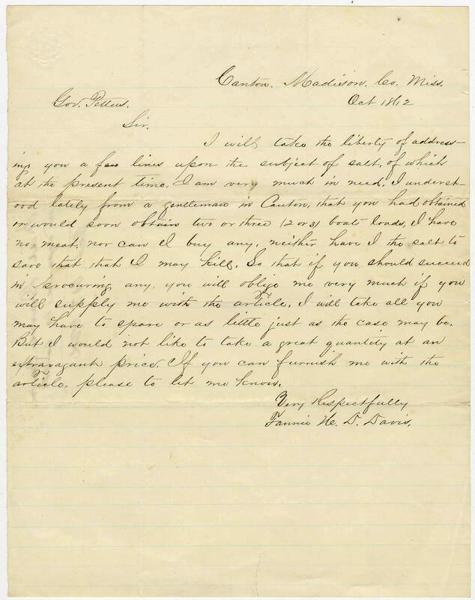 Canton. Madison. Co. Miss.
Oct 1862
Gov. Pettus.
Sir.
I will take the liberty of address-
ing you a few lines upon the subject of salt, of which
at the present time, I am very much in need. I underst-
ood lately from a gentleman in Canton, that you had obtained
or would soon obtain two or three (2 or 3) boat loads. I have
no meat, nor can I buy any, neither have I the salt to
save that that I may kill. So that if you should succeed
in procuring any you will oblige me very much if you
will supply me with the article. I will take all you
may have to spare or as little just as the case may be.
But I would not like to take a great quantity at an
extravagant price. If you can furnish me with the
article, please to let me know.
Very Respectfully
Fannie H. D. Davis.